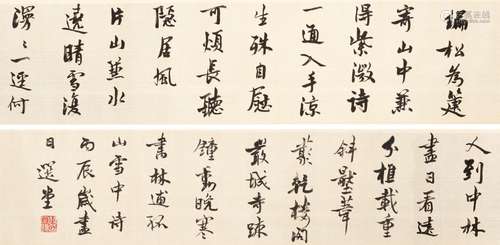 編松為箑
寄山中兼
得紫微詩
一通入手涼
生殊自慰
可煩長聽
隱居風
片山兼水
遶晴雪復
漫〻一逕何
人到中林
盡日看遠
分樵載重
斜壓葦
叢乾樓閣
嚴城寺疎
鐘動晚寒
書林逋孤
山雪中詩
丙辰歲盡
日選堂